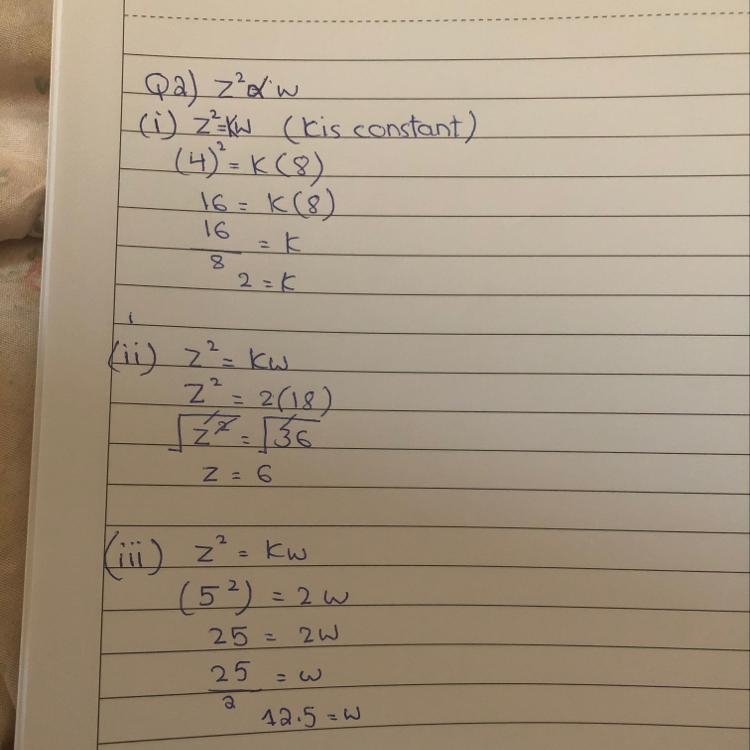 Q2) z²∝w
(i) z²=kw (k is constant)
(4)² = k(8)
16 = k(8)
16/8 = k
2 = k
(ii) z² = kw
z² = 2(18)
√z² = √36
z = 6
(iii) z² = kw
(5²) = 2w
25 = 2w
25/2 = w
12.5 = w